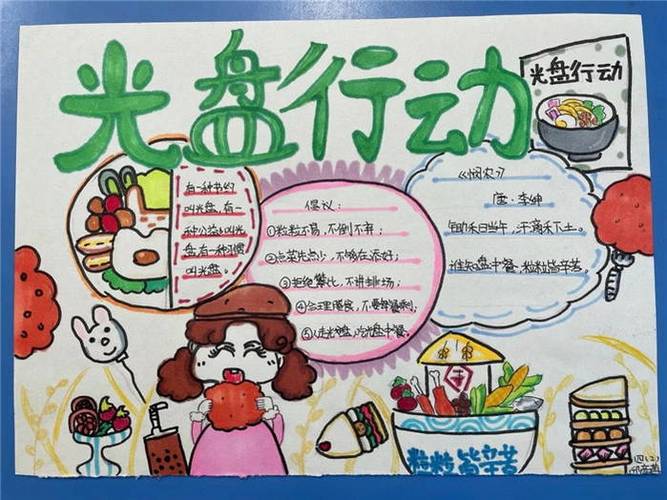 光盘行动
光盘行动
有一种节约
叫光盘,有一
种公益叫光
盘有一种习惯
叫光盘。
倡议:
①粒粒不易,不倒不弃;
②点菜先点少,不够在添好;
③拒绝攀比,不讲排场;
④合理膳食,不要铺剩;
⑤从光盘,吃光盘中餐。
《悯农》
唐·李绅
锄禾日当午,汗滴禾下土。
谁知盘中餐,粒粒皆辛苦。
丰
粒粒皆辛苦
四(2)